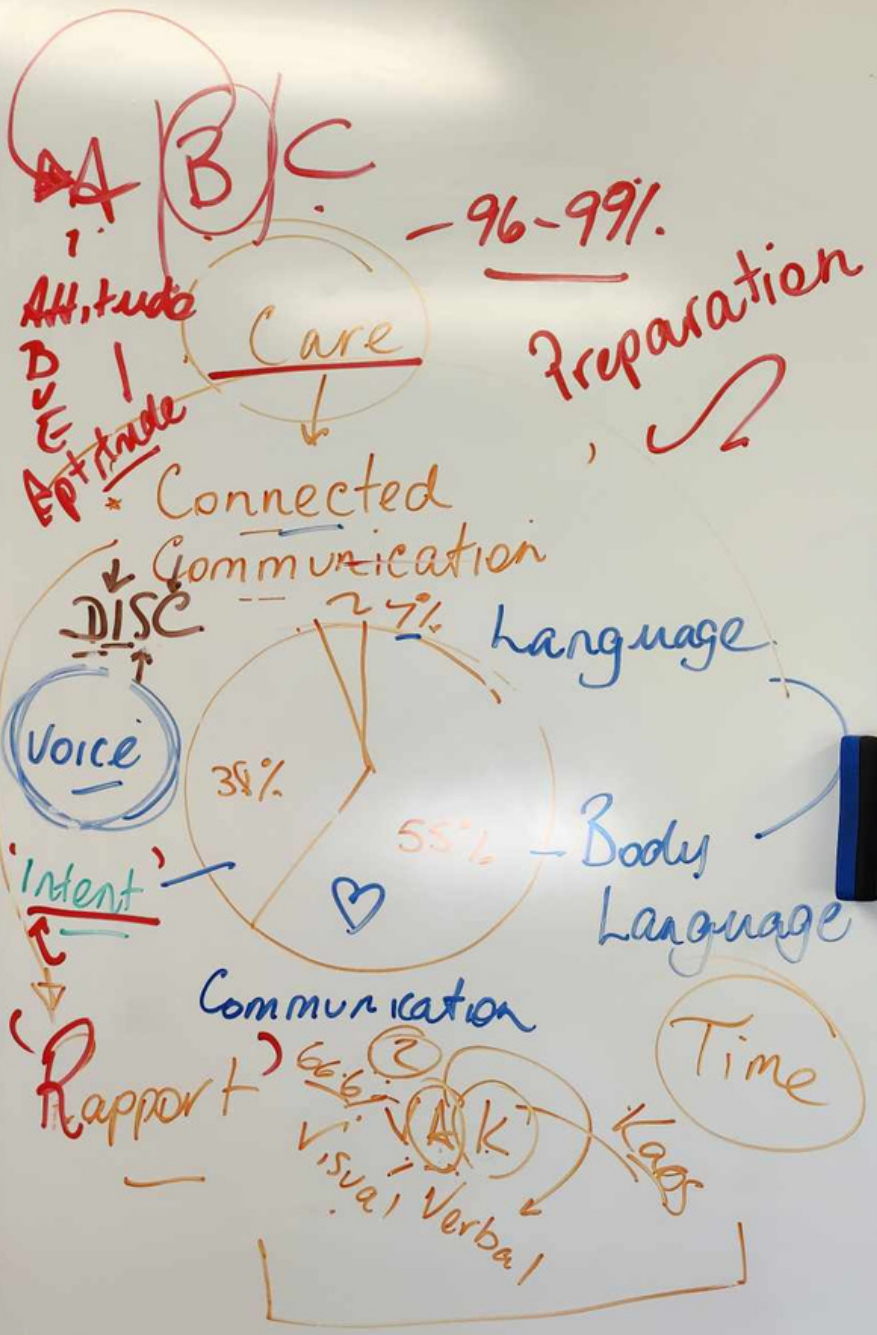 A B C
- 96-99%
Attitude
B
E
Aptitude
Care
Preparation
* Connected
Communication
DISC
7%
Language
Voice
38%
55%
Body
Language
'Intent'
Communication
'Rapport'
Time
66.6%
2
V A K
Visual
Verbal